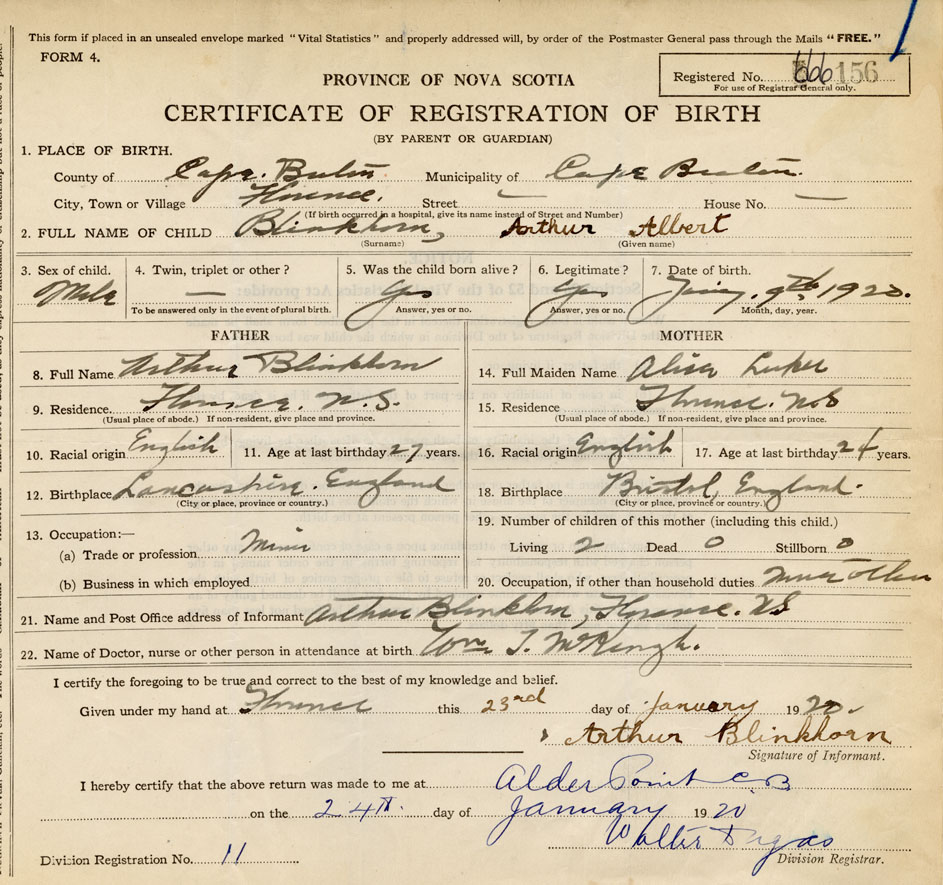 This form if placed in an unsealed envelope marked "Vital Statistics" and properly addressed will, by order of the Postmaster General pass through the Mails "FREE."
FORM 4.
PROVINCE OF NOVA SCOTIA
Registered No. 156
For use of Registrar General only.
CERTIFICATE OF REGISTRATION OF BIRTH
(BY PARENT OR GUARDIAN)
1. PLACE OF BIRTH.
County of Cape Breton Municipality of Cape Breton.
City, Town or Village Florence. Street — House No. —
(If birth occurred in a hospital, give its name instead of Street and Number)
2. FULL NAME OF CHILD Blinkhorn, Arthur Albert
(Surname) (Given name)
3. Sex of child. 4. Twin, triplet or other? 5. Was the child born alive? 6. Legitimate? 7. Date of birth.
Male — Yes Yes 9th, 1920.
To be answered only in the event of plural birth. Answer, yes or no. Answer, yes or no. Month, day, year.
FATHER MOTHER
8. Full Name Arthur Blinkhorn 14. Full Maiden Name Luker
9. Residence. Florence. N.S. 15. Residence Florence. N.S
(Usual place of abode.) If non-resident, give place and province. (Usual place of abode.) If non-resident, give place and province.
10. Racial origin English 11. Age at last birthday 27 years. 16. Racial origin English 17. Age at last birthday 24 years.
12. Birthplace Lancashire. England 18. Birthplace Bristol, England.
(City or place, province or country.) (City or place, province or country.)
13. Occupation:— 19. Number of children of this mother (including this child.)
(a) Trade or profession Miner Living 2 Dead 0 Stillborn 0
(b) Business in which employed 20. Occupation, if other than household duties
21. Name and Post Office address of Informant Arthur Blinkhorn, Florence. N.S
22. Name of Doctor, nurse or other person in attendance at birth Wm. T. McKeough.
I certify the foregoing to be true and correct to the best of my knowledge and belief.
Given under my hand at Florence this 23rd day of January 1920.
Arthur Blinkhorn
Signature of Informant.
I hereby certify that the above return was made to me at Alder Point C B
on the 24th. day of January 1920
Walter Dugas
Division Registrar.
Division Registration No. 11